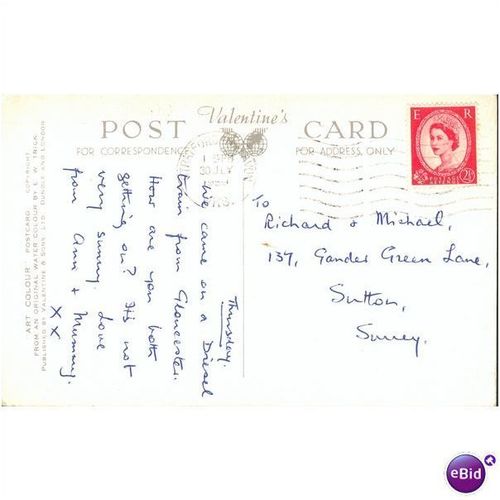 POST Valentine's CARD
FOR CORRESPONDENCE FOR ADDRESS ONLY
E R
POSTAGE REVENUE
2½
30 JLY
Thursday.
We came on a Diesel
train from Gloucester.
How are you both
getting on? It's not
very sunny. Love
from Ann & Mummy.
X X
To
Richard & Michael,
137, Gander Green Lane,
Sutton,
Surrey.
ART COLOUR POSTCARD COPYRIGHT
FROM AN ORIGINAL WATER COLOUR BY E. W. TRICK
PUBLISHED BY VALENTINE & SONS LTD. DUNDEE AND LONDON
eBid